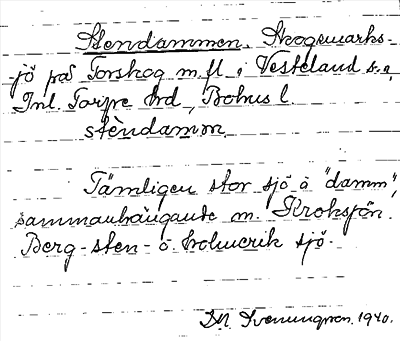 Stendammen. Skogsmarks-
-jö på Forskog m.fl. i Vesteland s:n,
Inl. Torpe hd, Bohus l.
stèndamm.
Tämligen stor sjö à "damm",
sammanhängande m. Kroksjön.
Berg- sten- o. holmerik sjö.
D.A. Svenungsson. 1940.